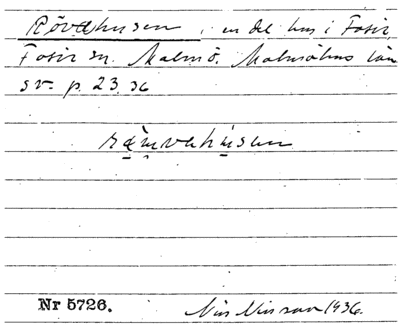 Rövahusen, en del hus i Fosie,
Fosie sn. Malmö, Malmöhus län
sv. p. 23, 36
Nr 5726. Nils Nilsson 1936.